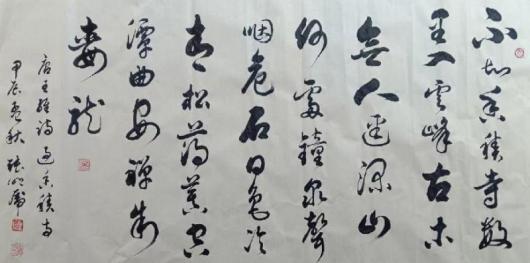 不知香積寺數
里入雲峰古木
無人逕深山
何處鐘泉聲
咽危石日色冷
青松薄暮空
潭曲安禪制
毒龍
唐王維詩過香積寺
甲辰秋